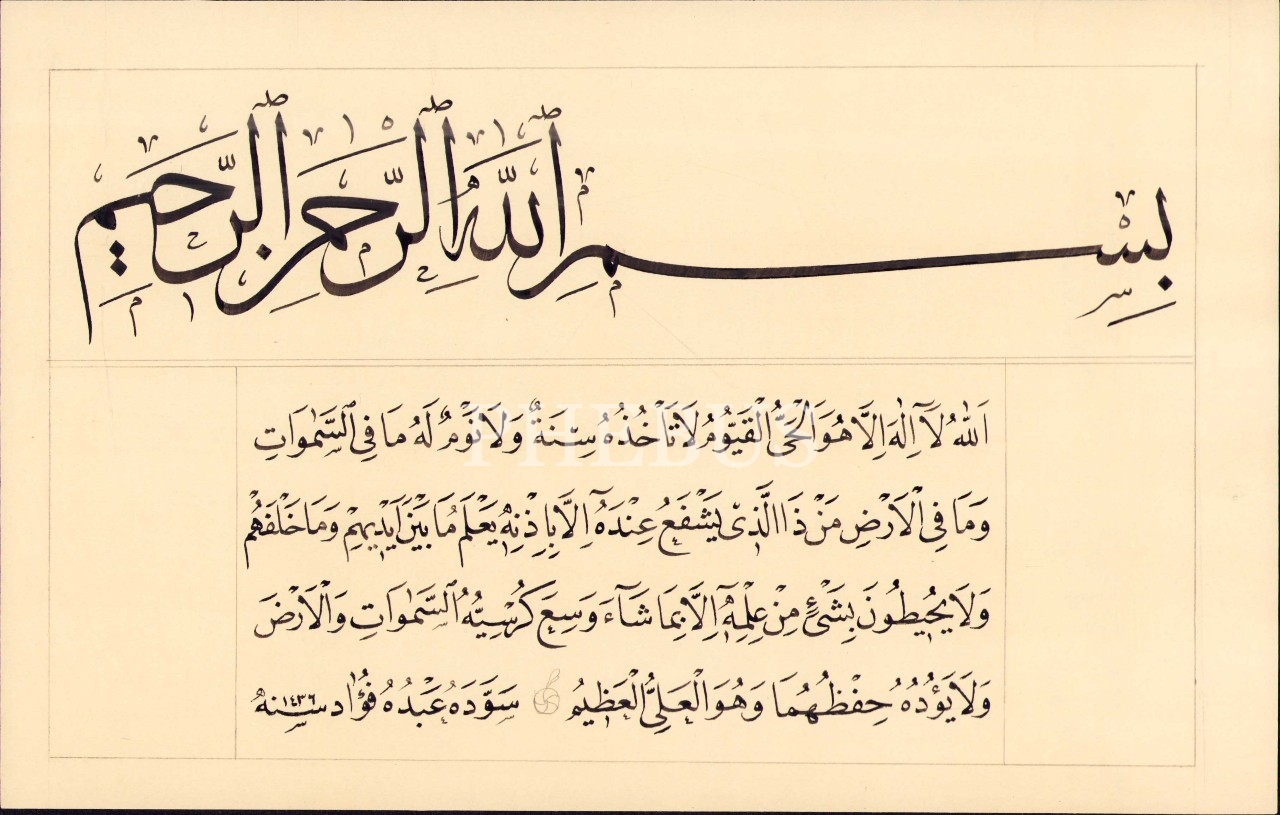 بِسْمِ اللهِ الرَّحْمٰنِ الرَّحِيمِ
اَللهُ لَٓا اِلٰهَ اِلَّا هُوَ الْحَىُّ الْقَيُّومُ لَا تَأْخُذُهُ سِنَةٌ وَلَا نَوْمٌ لَهُ مَا فِى السَّمٰوَاتِ
وَمَا فِى الْاَرْضِ مَنْ ذَا الَّذِى يَشْفَعُ عِنْدَهُٓ اِلَّا بِاِذْنِهٖ يَعْلَمُ مَا بَيْنَ اَيْدِيهِمْ وَمَا خَلْفَهُمْ
وَلَا يُحِيطُونَ بِشَىْءٍ مِنْ عِلْمِهٖٓ اِلَّا بِمَا شَٓاءَ وَسِعَ كُرْسِيُّهُ السَّمٰوَاتِ وَالْاَرْضَ
وَلَا يَؤُدُهُ حِفْظُهُمَا وَهُوَ الْعَلِىُّ الْعَظِيمُ سَوَّدَهُ عَبْدُهُ فُؤَاد سنه ١٤٣٦
PHEBUS